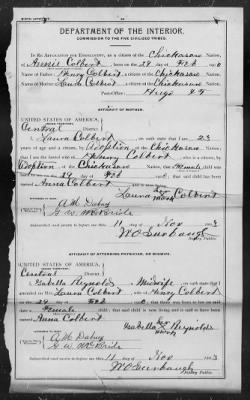 DEPARTMENT OF THE INTERIOR.
COMMISSION TO THE FIVE CIVILIZED TRIBES.
IN RE APPLICATION FOR ENROLLMENT, as a citizen of the Chickasaw Nation,
of Annie Colbert, born on the 29 day of Feb
Name of Father: Henry Colbert a citizen of the Chickasaw Nation.
Name of Mother: Laura Colbert a citizen of the Chickasaw Nation.
Postoffice Hugo I.T.
AFFIDAVIT OF MOTHER.
UNITED STATES OF AMERICA
Central District
I, Laura Colbert, on oath state that I am 23
years of age and a citizen by Adoption, of the Chickasaw Nation,
that I am the lawful wife of Henry Colbert, who is a citizen, by
Adoption of the Chickasaw Nation, that a Female child was
born to me on 29 day of Feb, that said child has been
named Anna Colbert
Laura her mark Colbert
A.M. Dabny
G. W. McBride
Subscribed and sworn to before me this 11 day of Nov 1903
Notary Public.
AFFIDAVIT OF ATTENDING PHYSICIAN, OR MIDWIFE.
UNITED STATES OF AMERICA
Central District
I, Isabella Reynolds, a Midwife, on oath state that I
attended on Mrs. Laura Colbert, wife of Henry Colbert
on the 29 day of Feb, that there was born to her on said
date a Female child; that said child is now living and is said to
have been named Anna Colbert
Isabella her mark Reynolds
A.M. Dabny
G. W. McBride
Subscribed and sworn to before me this 11 day of Nov 1903
Notary Public.